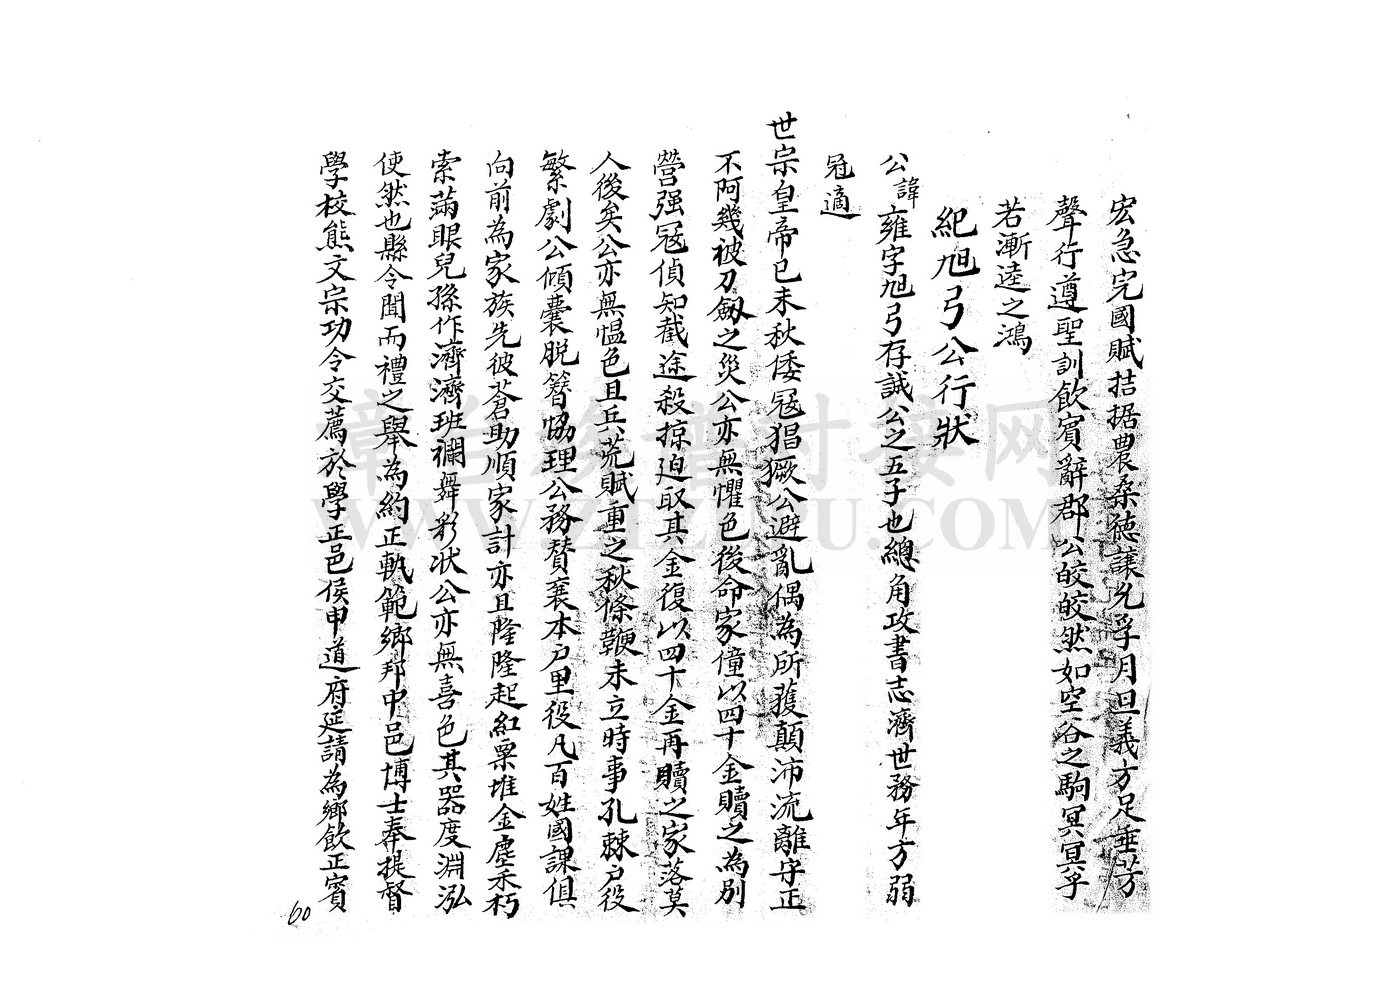 宏急完國賦拮据農桑德讓允孚月旦義方足垂芳
聲行遵聖訓飲賓辭郡公皎皎然如空谷之駒冥冥乎
若漸逵之鴻
紀旭弓公行狀
公諱雍字旭弓存誠公之五子也總角攻書志濟世務年方弱
冠適
世宗皇帝已未秋倭寇猖獗公避亂偶為所獲顛沛流離守正
不阿幾被刀劔之災公亦無懼色後命家僮以四十金贖之為別
營强冦偵知截途殺掠迫取其金復以四十金再贖之家落莫
人後矣公亦無愠色且兵荒賦重之秋條鞭未立時事孔棘户役
繁劇公傾囊脫簪恊理公務賛襄本户里役凡百姓國課俱
向前為家族先彼蒼助順家計亦且隆隆起紅粟堆金塵禾朽
索滿眼兒孫作濟濟班襴舞彩狀公亦無喜色其器度淵泓
使然也縣令聞而禮之舉為約正軌範鄉邦中邑博士奉提督
學校熊文宗功令交薦於學正邑侯申道府延請為鄉飲正賓
60
章台缘谱对接网
WWW.ZTZUPU.COM